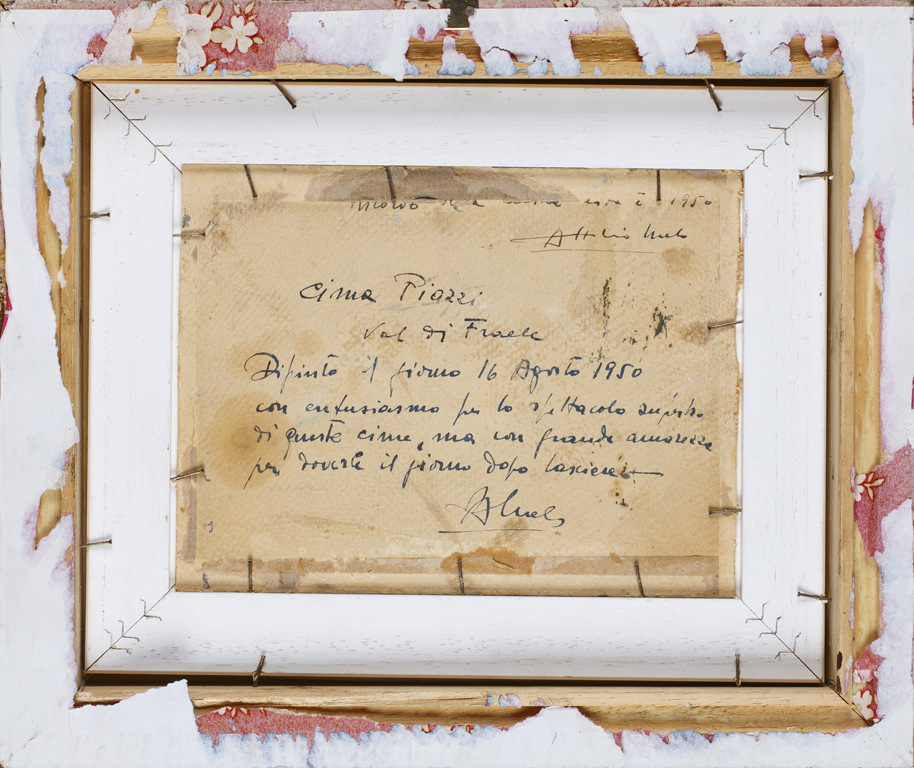 1950
Attilio
Cima Piazzi
Val di Fraele
Dipinto il giorno 16 Agosto 1950
con entusiasmo per lo spettacolo superbo
di queste cime, ma con grande amarezza
per doverle il giorno dopo lasciare